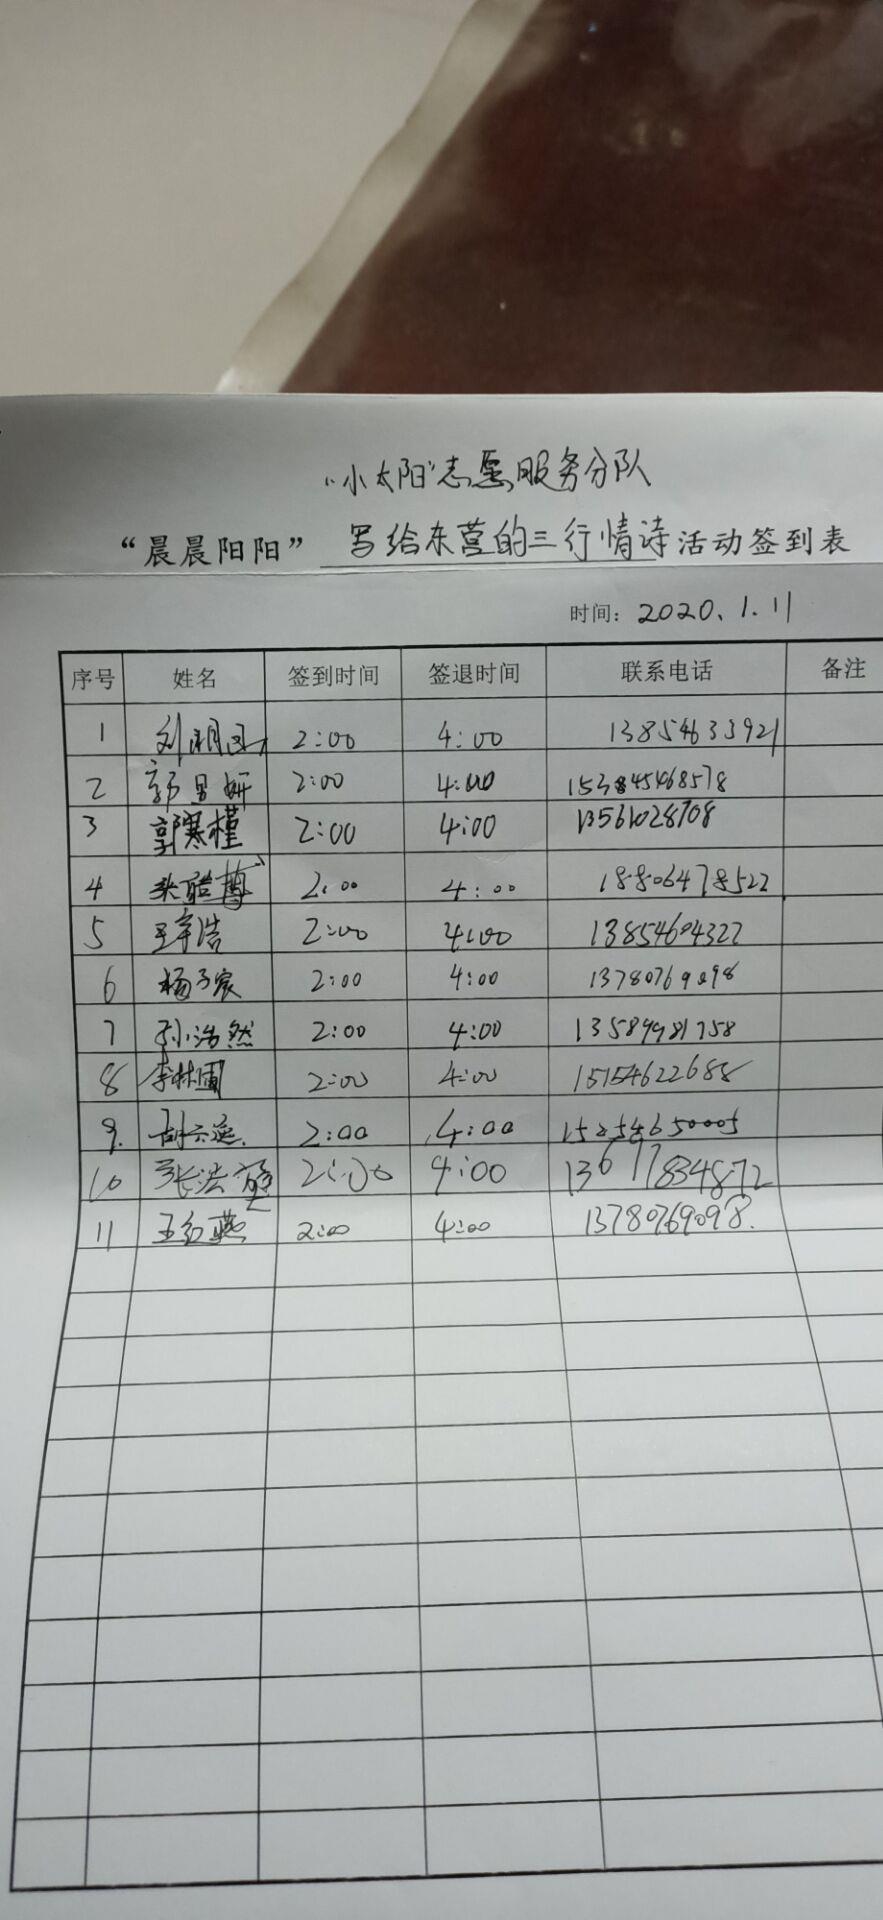 “小太阳”志愿服务分队
“晨晨阳阳” 写给东营的三行情诗活动签到表
时间: 2020.1.11
序号 姓名 签到时间 签退时间 联系电话 备注
1 2:00 4:00 13854633921
2 2:00 4:00
3 郭寒槿 2:00 4:00 13561028708
4 2:00 4:00 18806478522
5 王宇浩 2:00 4:00 13854604322
6 杨子宸 2:00 4:00 13780769098
7 孙浩然 2:00 4:00 13589981758
8 2:00 4:00 15154622688
9. 2:00 4:00 15254650005
10 2:00 4:00
11 王红燕 2:00 4:00 13780769098.